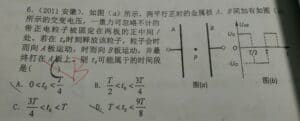 6. (2011 安徽)、如图(a)所示,两平行正对的金属板 A、B间加有如图(b)
所示的交变电压,一重力可忽略不计的
带正电粒子被固定在两板的正中间P
处。若在 t₀时刻释放该粒子,粒子会时
而向 A板运动,时而向 B板运动,并最
终打在 A板上。则 t₀可能属于的时间段
是( )
B
A. 0<t₀<T/4
B. T/2<t₀<3T/4
C. 3T/4<t₀<T
D. T<t₀<9T/8
A
B
P
图(a)
U₀
T/2
T
图(b)